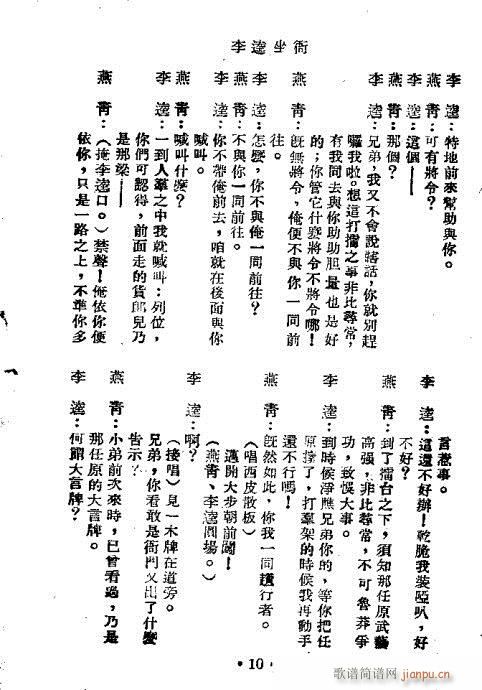 李逵坐衙
李　逵：特地前來幫助與你。
燕　青：可有將令？
李　逵：這個——
燕　青：那個？
李　逵：兄弟，我又不會說瞎話，你就別趕
囉我啦。想這打擂之事非比尋常，
有我同去與你助助胆量也是好
的；你管它什麽將令不將令哪！
燕　青：旣無將令，俺便不與你一同前
往。
李　逵：怎麽，你不與俺一同前往？
燕　青：不與你一同前往。
李　逵：你不帶俺前去，咱就在後面與你
喊叫。
燕　青：喊叫什麽？
李　逵：一到人羣之中我就喊叫：列位，
你們可認得，前面走的貨郎兒乃
是那梁——
燕　青：（掩李逵口。）禁聲！俺依你便
依你，只是一路之上，不準你多
言惹事。
李　逵：這還不好辦！乾脆我裝啞叭，好
不好？
燕　青：到了擂台之下，須知那任原武藝
高强，非比尋常，不可魯莽爭
功，致悞大事。
李　逵：到時候淨瞧兄弟你的，等你把任
原摔了，打羣架的時候我再動手
還不行嗎！
燕　青：旣然如此，你我一同趲行者。
（唱西皮散板）
邁開大步朝前闖！
（燕青、李逵圓場。）
李　逵：啊？
（接唱）見一木牌在道旁。
兄弟，你看敢是衙門又出了什麽
告示？
燕　青：小弟前次來時，已曾看過，乃是
那任原的大言牌。
李　逵：何謂大言牌？
• 10 •
歌谱简谱网
jianpu.cn